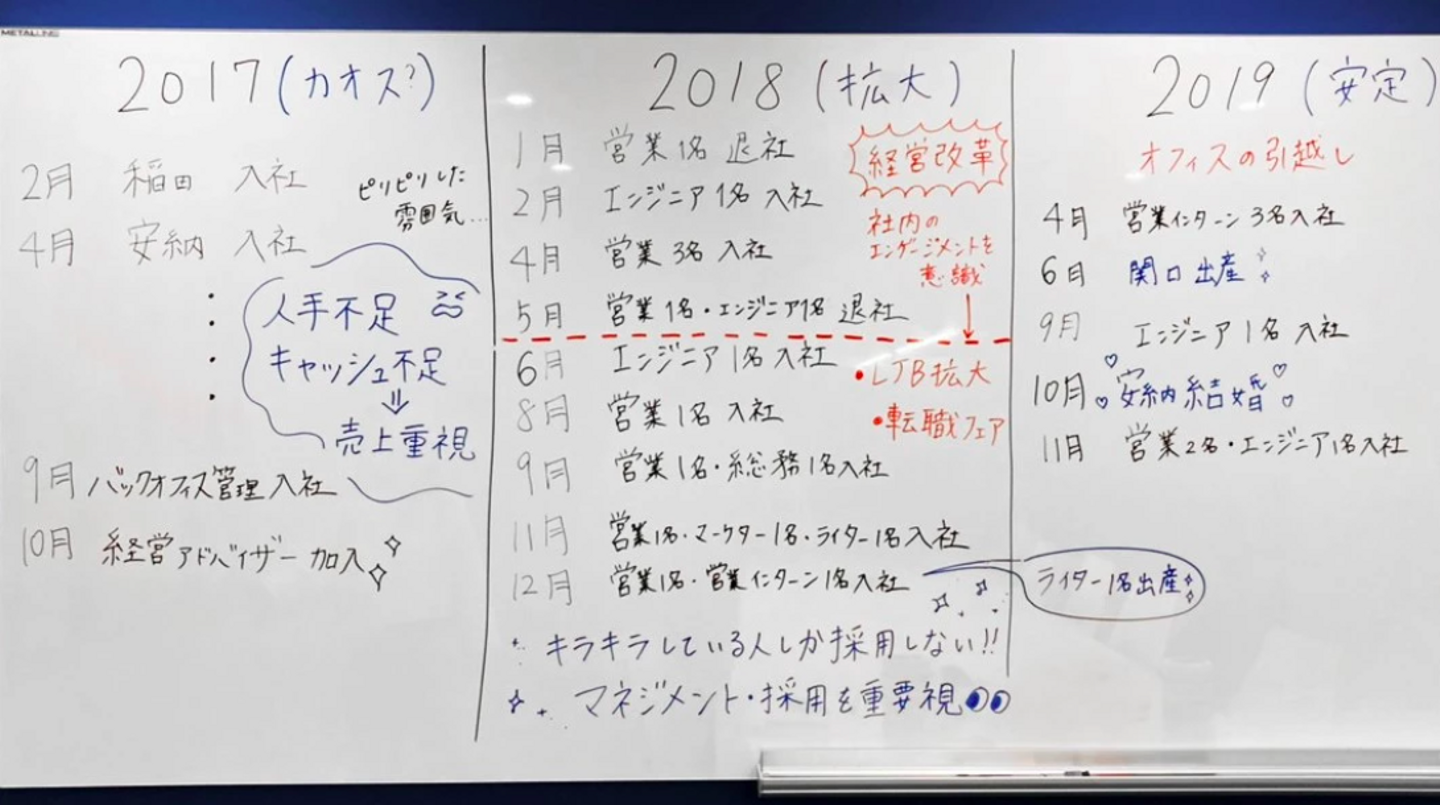 METALLINE
2017(カオス?)
2月 稲田 入社
ピリピリした
雰囲気...
4月 安納 入社
人手不足
キャッシュ不足
⇓
売上重視
9月 バックオフィス管理入社
10月 経営アドバイザー加入
2018(拡大)
1月 営業1名 退社
2月 エンジニア1名 入社
4月 営業 3名 入社
5月 営業1名・エンジニア1名 退社
6月 エンジニア1名入社
8月 営業1名 入社
9月 営業1名・総務1名入社
11月 営業1名・マーケター1名・ライター1名入社
12月 営業1名・営業インターン1名入社
ライター1名出産
経営改革
社内の
エンゲージメントを
意識
↓
・LJB拡大
・転職フェア
キラキラしている人しか採用しない!!
マネジメント・採用を重要視
2019(安定)
オフィスの引越し
4月 営業インターン3名入社
6月 関口出産
9月 エンジニア1名 入社
10月 安納結婚
11月 営業2名・エンジニア1名入社